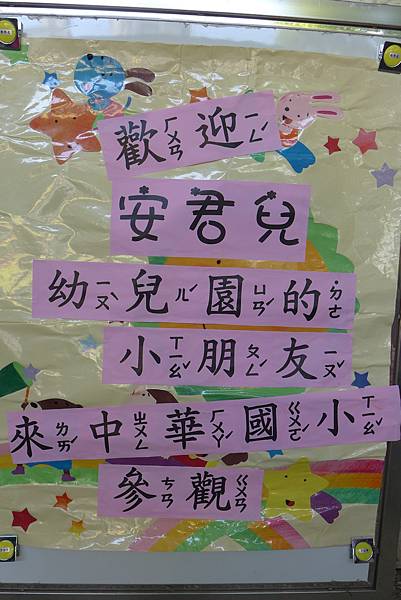 歡ㄏㄨㄢ迎ㄧㄥˊ
安君兒
幼ㄧㄡˋ兒ㄦˊ園ㄩㄢˊ的˙ㄉㄜ
小ㄒㄧㄠˇ朋ㄆㄥˊ友ㄧㄡˇ
來ㄌㄞˊ中ㄓㄨㄥ華ㄏㄨㄚˊ國ㄍㄨㄛˊ小ㄒㄧㄠˇ
參ㄘㄢ觀ㄍㄨㄢ